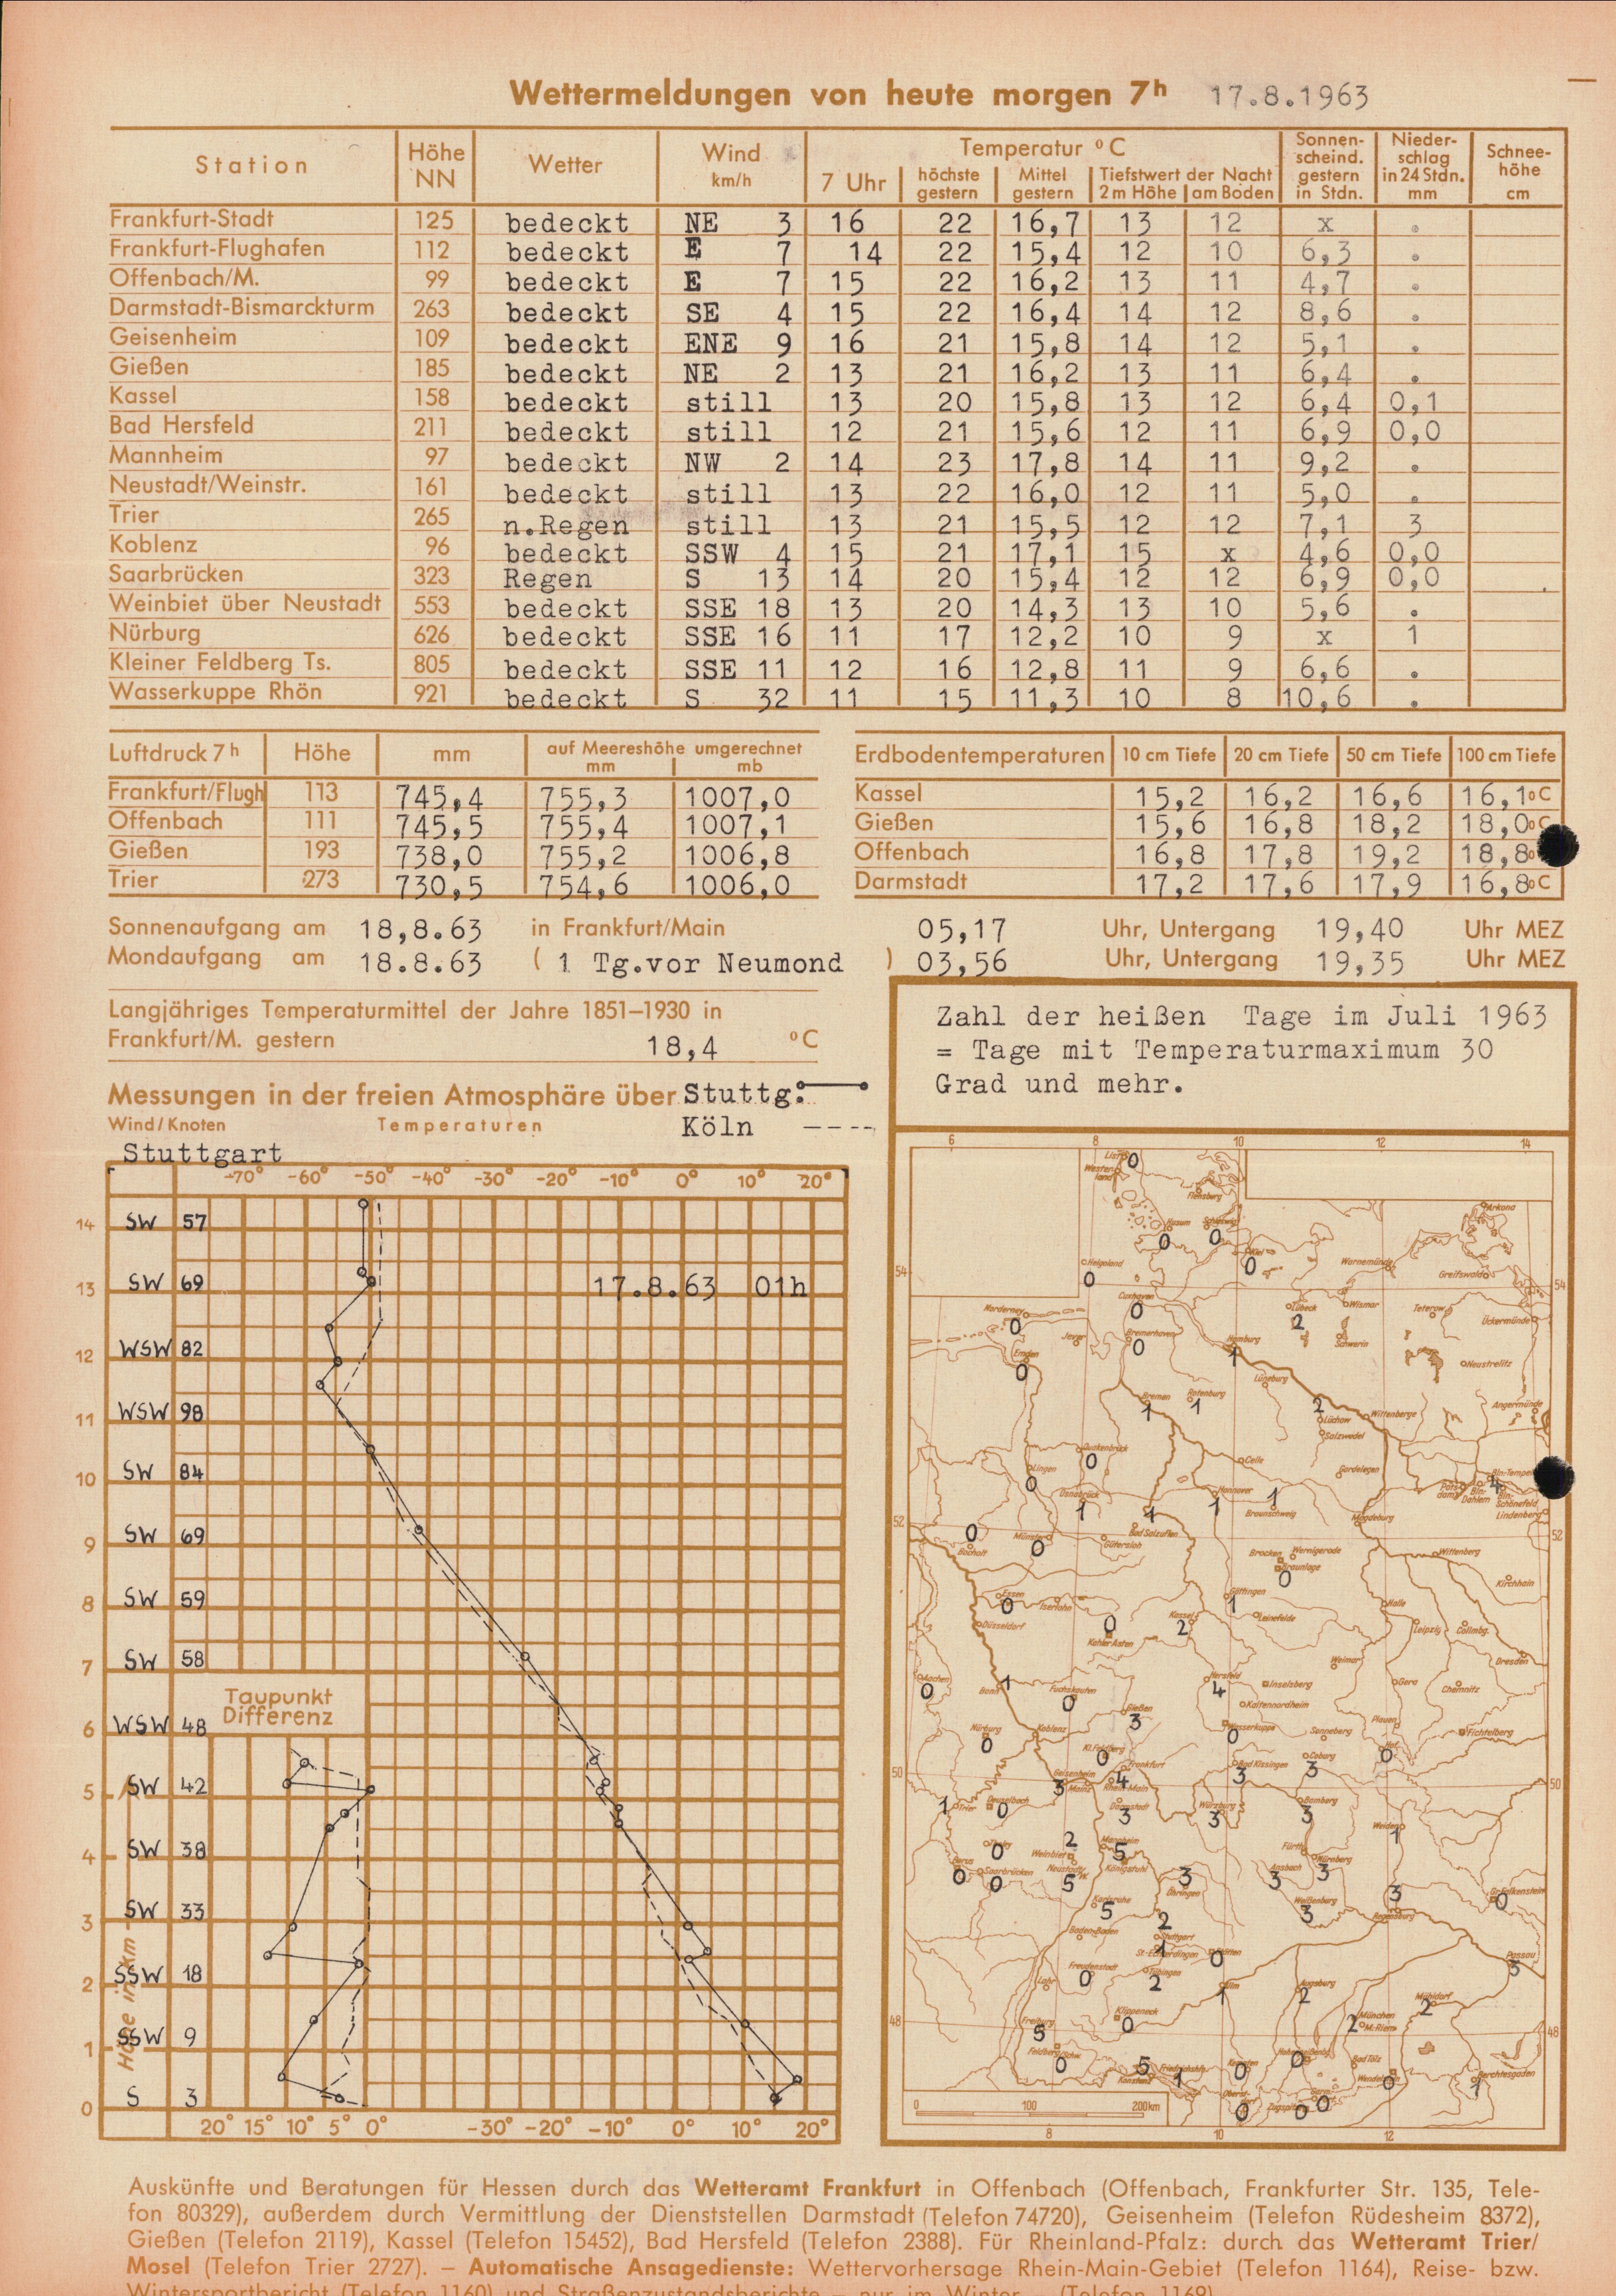 Wettermeldungen von heute morgen 7h 17.8.1963
Station Höhe NN Wetter Wind km/h Temperatur °C Sonnenscheind. gestern in Stdn. Niederschlag in 24 Stdn. mm Schneehöhe cm
7 Uhr höchste gestern Mittel gestern Tiefstwert der Nacht 2 m Höhe am Boden
Frankfurt-Stadt 125 bedeckt NE 3 16 22 16,7 13 12 x .
Frankfurt-Flughafen 112 bedeckt E 7 14 22 15,4 12 10 6,3 .
Offenbach/M. 99 bedeckt E 7 15 22 16,2 13 11 4,7 .
Darmstadt-Bismarckturm 263 bedeckt SE 4 15 22 16,4 14 12 8,6 .
Geisenheim 109 bedeckt ENE 9 16 21 15,8 14 12 5,1 .
Gießen 185 bedeckt NE 2 13 21 16,2 13 11 6,4 .
Kassel 158 bedeckt still 13 20 15,8 13 12 6,4 0,1
Bad Hersfeld 211 bedeckt still 12 21 15,6 12 11 6,9 0,0
Mannheim 97 bedeckt NW 2 14 23 17,8 14 11 9,2 .
Neustadt/Weinstr. 161 bedeckt still 13 22 16,0 12 11 5,0 .
Trier 265 n.Regen still 13 21 15,5 12 12 7,1 3
Koblenz 96 bedeckt SSW 4 15 21 17,1 15 x 4,6 0,0
Saarbrücken 323 Regen S 13 14 20 15,4 12 12 6,9 0,0
Weinbiet über Neustadt 553 bedeckt SSE 18 13 20 14,3 13 10 5,6 .
Nürburg 626 bedeckt SSE 16 11 17 12,2 10 9 x 1
Kleiner Feldberg Ts. 805 bedeckt SSE 11 12 16 12,8 11 9 6,6 .
Wasserkuppe Rhön 921 bedeckt S 32 11 15 11,3 10 8 10,6 .
Luftdruck 7h Höhe mm auf Meereshöhe umgerechnet mm mb
Frankfurt/Flugh 113 745,4 755,3 1007,0
Offenbach 111 745,5 755,4 1007,1
Gießen 193 738,0 755,2 1006,8
Trier 273 730,5 754,6 1006,0
Erdbodentemperaturen 10 cm Tiefe 20 cm Tiefe 50 cm Tiefe 100 cm Tiefe
Kassel 15,2 16,2 16,6 16,1°C
Gießen 15,6 16,8 18,2 18,0°C
Offenbach 16,8 17,8 19,2 18,8°
Darmstadt 17,2 17,6 17,9 16,8°C
Sonnenaufgang am 18,8.63 in Frankfurt/Main 05,17 Uhr, Untergang 19,40 Uhr MEZ
Mondaufgang am 18.8.63 ( 1 Tg.vor Neumond ) 03,56 Uhr, Untergang 19,35 Uhr MEZ
Langjähriges Temperaturmittel der Jahre 1851–1930 in
Frankfurt/M. gestern 18,4 °C
Zahl der heißen Tage im Juli 1963
= Tage mit Temperaturmaximum 30
Grad und mehr.
Messungen in der freien Atmosphäre über Stuttg.
Wind/Knoten Temperaturen Köln ----
Stuttgart
-70° -60° -50° -40° -30° -20° -10° 0° 10° 20°
14 SW 57
13 SW 69 17.8.63 01h
12 WSW 82
11 WSW 98
10 SW 84
9 SW 69
8 SW 59
7 SW 58
Taupunkt
Differenz
6 WSW 48
5 SW 42
4 SW 38
3 SW 33
2 SSW 18
1 SSW 9
0 S 3
Höhe in km
20° 15° 10° 5° 0° -30° -20° -10° 0° 10° 20°
6 8 10 12 14
List 0
Westerland
Flensburg
Husum 0
Schleswig 0
Kiel 0
Arkona
Helgoland 0
Warnemünde
Greifswald
54 54
Norderney 0
Cuxhaven 0
Lübeck 2
Wismar
Teterow
Ückermünde
Jever
Bremerhaven 0
Hamburg 1
Schwerin
Emden 0
Neustrelitz
Lüneburg
Bremen 1
Rotenburg 1
Lüchow 2
Wittenberge
Angermünde
Salzwedel
Quakenbrück 0
Lingen 0
Celle
Gardelegen
Osnabrück 1
Hannover 1
Braunschweig 1
Potsdam
Bln.-Tempel 4
Bln.-Dahlem
Bln.-Schönefeld
Lindenberg
Magdeburg
52 52
Bocholt 0
Münster 0
Bad Salzuflen 1
Gütersloh
Brocken
Wernigerode
Braunlage 0
Wittenberg
Kirchhain
Essen 0
Iserlohn
Göttingen 1
Leinefelde
Halle
Düsseldorf
Kahler Asten 0
Kassel 2
Leipzig
Collmbg.
Weimar
Dresden
Aachen 0
Bonn 1
Fuchskauten 0
Hersfeld 4
Inselsberg
Gera
Chemnitz
Kaltennordheim
Gießen 3
Nürburg 0
Koblenz
Wasserkuppe 0
Sonneberg
Plauen
Fichtelberg
Kl.Feldberg 0
Frankfurt
Rhein-Main 4
Bad Kissingen 3
Coburg 3
Hof 0
50 50
Geisenheim 3
Mainz
Trier 1
Deuselbach 0
Darmstadt 3
Würzburg 3
Bamberg 3
Weiden 1
Tholey 0
Weinbiet 2
Mannheim 5
Königstuhl
Fürth
Nürnberg 3
Berus 0
Saarbrücken 0
Neustadt 5
Öhringen 3
Ansbach 3
Karlsruhe 5
Weißenburg 3
Regensburg 3
Gr.Falkenstein 0
Baden-Baden
Stuttgart 2
St.-Echterdingen 1
Stötten 0
Passau 3
Freudenstadt 0
Tübingen 2
Lahr
Ulm 1
Augsburg 2
Mühldorf 2
48 48
Freiburg 5
Klippeneck 0
München 2
M.-Riem
Feldberg/Schw. 0
Konstanz 5
Friedrichshfn. 1
Kempten 0
Hohenpeißenbg. 0
Bad Tölz
Wendelst. 0
Berchtesgaden 1
Oberstdorf 0
Zugspitze 0
Garm. 0
0 100 200km
8 10 12
Auskünfte und Beratungen für Hessen durch das Wetteramt Frankfurt in Offenbach (Offenbach, Frankfurter Str. 135, Tele-
fon 80329), außerdem durch Vermittlung der Dienststellen Darmstadt (Telefon 74720), Geisenheim (Telefon Rüdesheim 8372),
Gießen (Telefon 2119), Kassel (Telefon 15452), Bad Hersfeld (Telefon 2388). Für Rheinland-Pfalz: durch das Wetteramt Trier/
Mosel (Telefon Trier 2727). — Automatische Ansagedienste: Wettervorhersage Rhein-Main-Gebiet (Telefon 1164), Reise- bzw.
Wintersportbericht (Telefon 1160) und Straßenzustandsberichte — nur im Winter — (Telefon 1169)